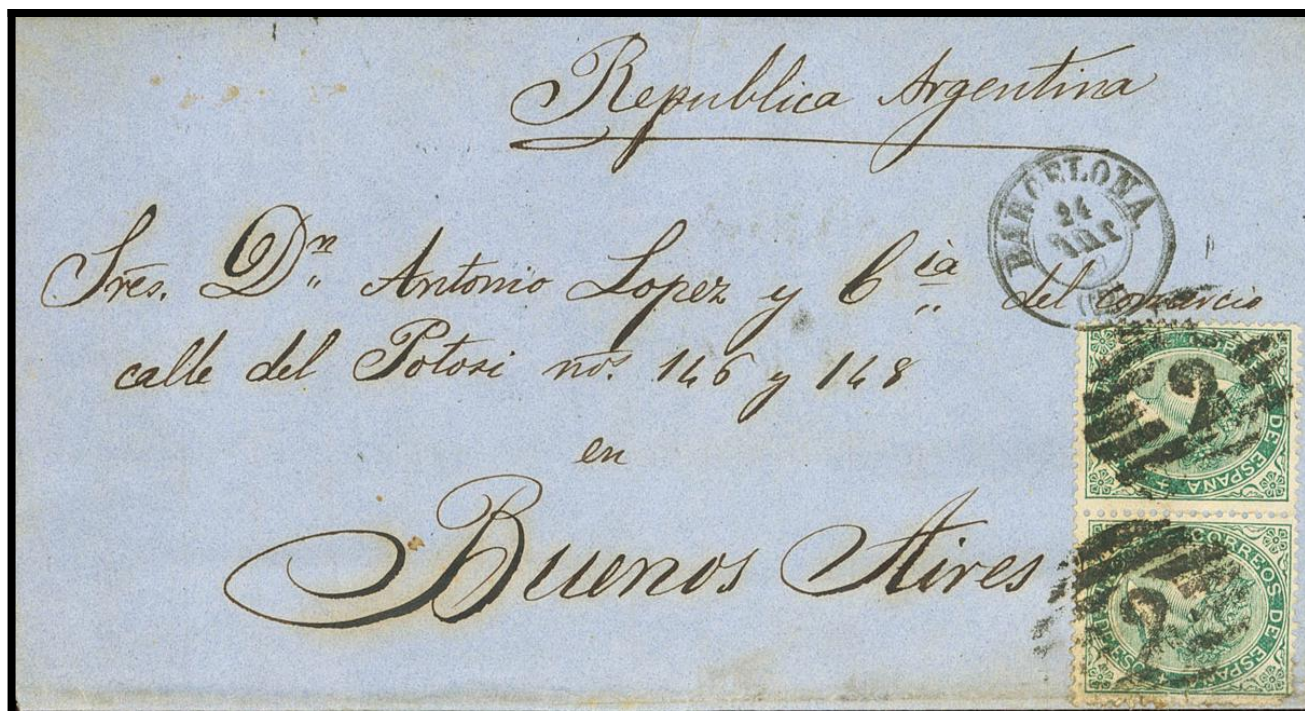 Republica Argentina
BARCELONA
24
Sres. Dn. Antonio Lopez y Cia. del comercio
calle del Potosi nos. 146 y 148
en
Buenos Aires
2
DE ESPANA
2
CORREOS DE ESPANA